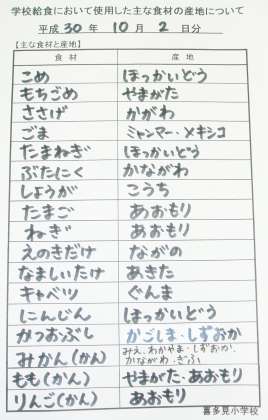 学校給食において使用した主な食材の産地について
平成 30 年 10 月 2 日分
【主な食材と産地】
食材 産地
こめ ほっかいどう
もちごめ やまがた
ささげ かがわ
ごま ミャンマー・メキシコ
たまねぎ ほっかいどう
ぶたにく かながわ
しょうが こうち
たまご あおもり
ねぎ あおもり
えのきだけ ながの
なましいたけ あきた
キャベツ ぐんま
にんじん ほっかいどう
かつおぶし かごしま・しずおか
みかん(かん) みえ、わかやま・しずおか、
かながわ・ぎふ
もも(かん) やまがた・あおもり
りんご(かん) あおもり
喜多見小学校